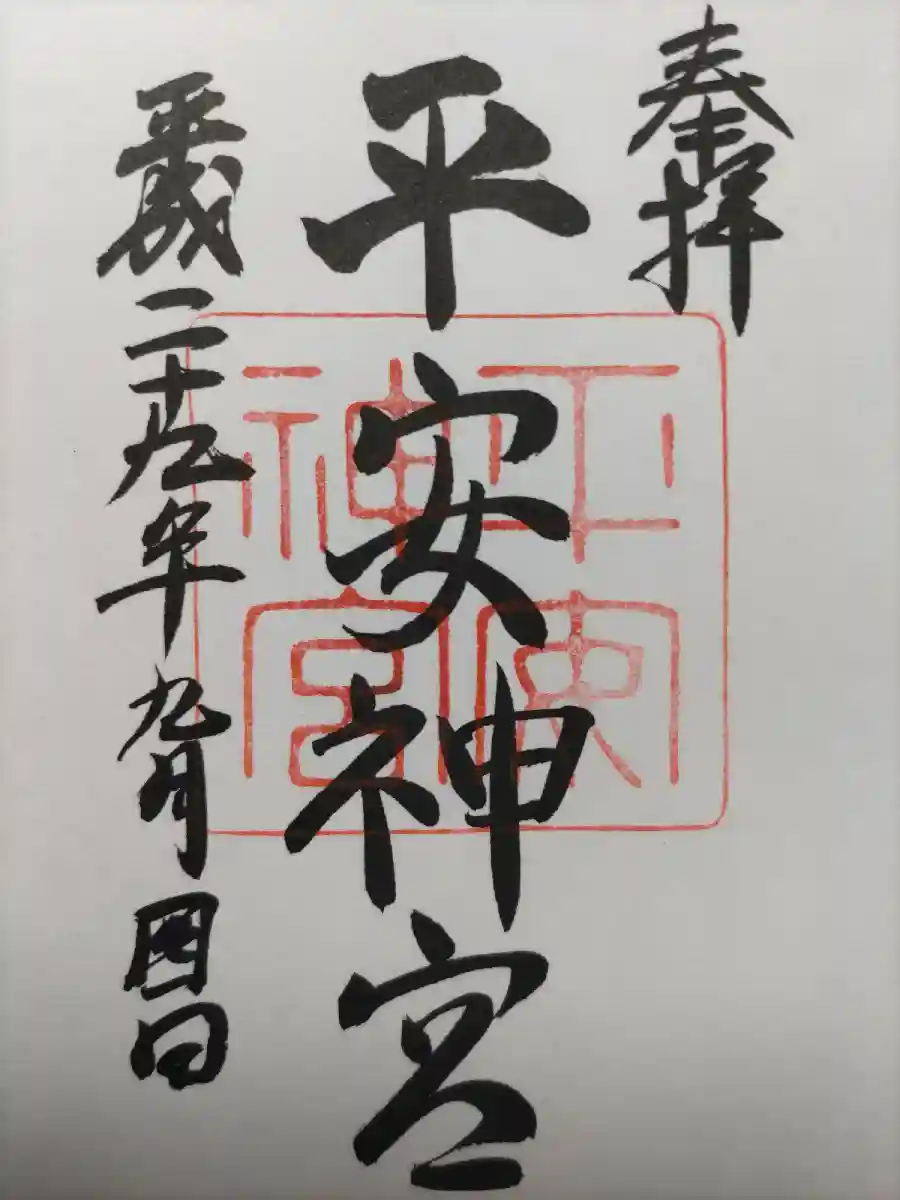 奉拝
平安神宮
平成二十九年九月四日
平安神宮